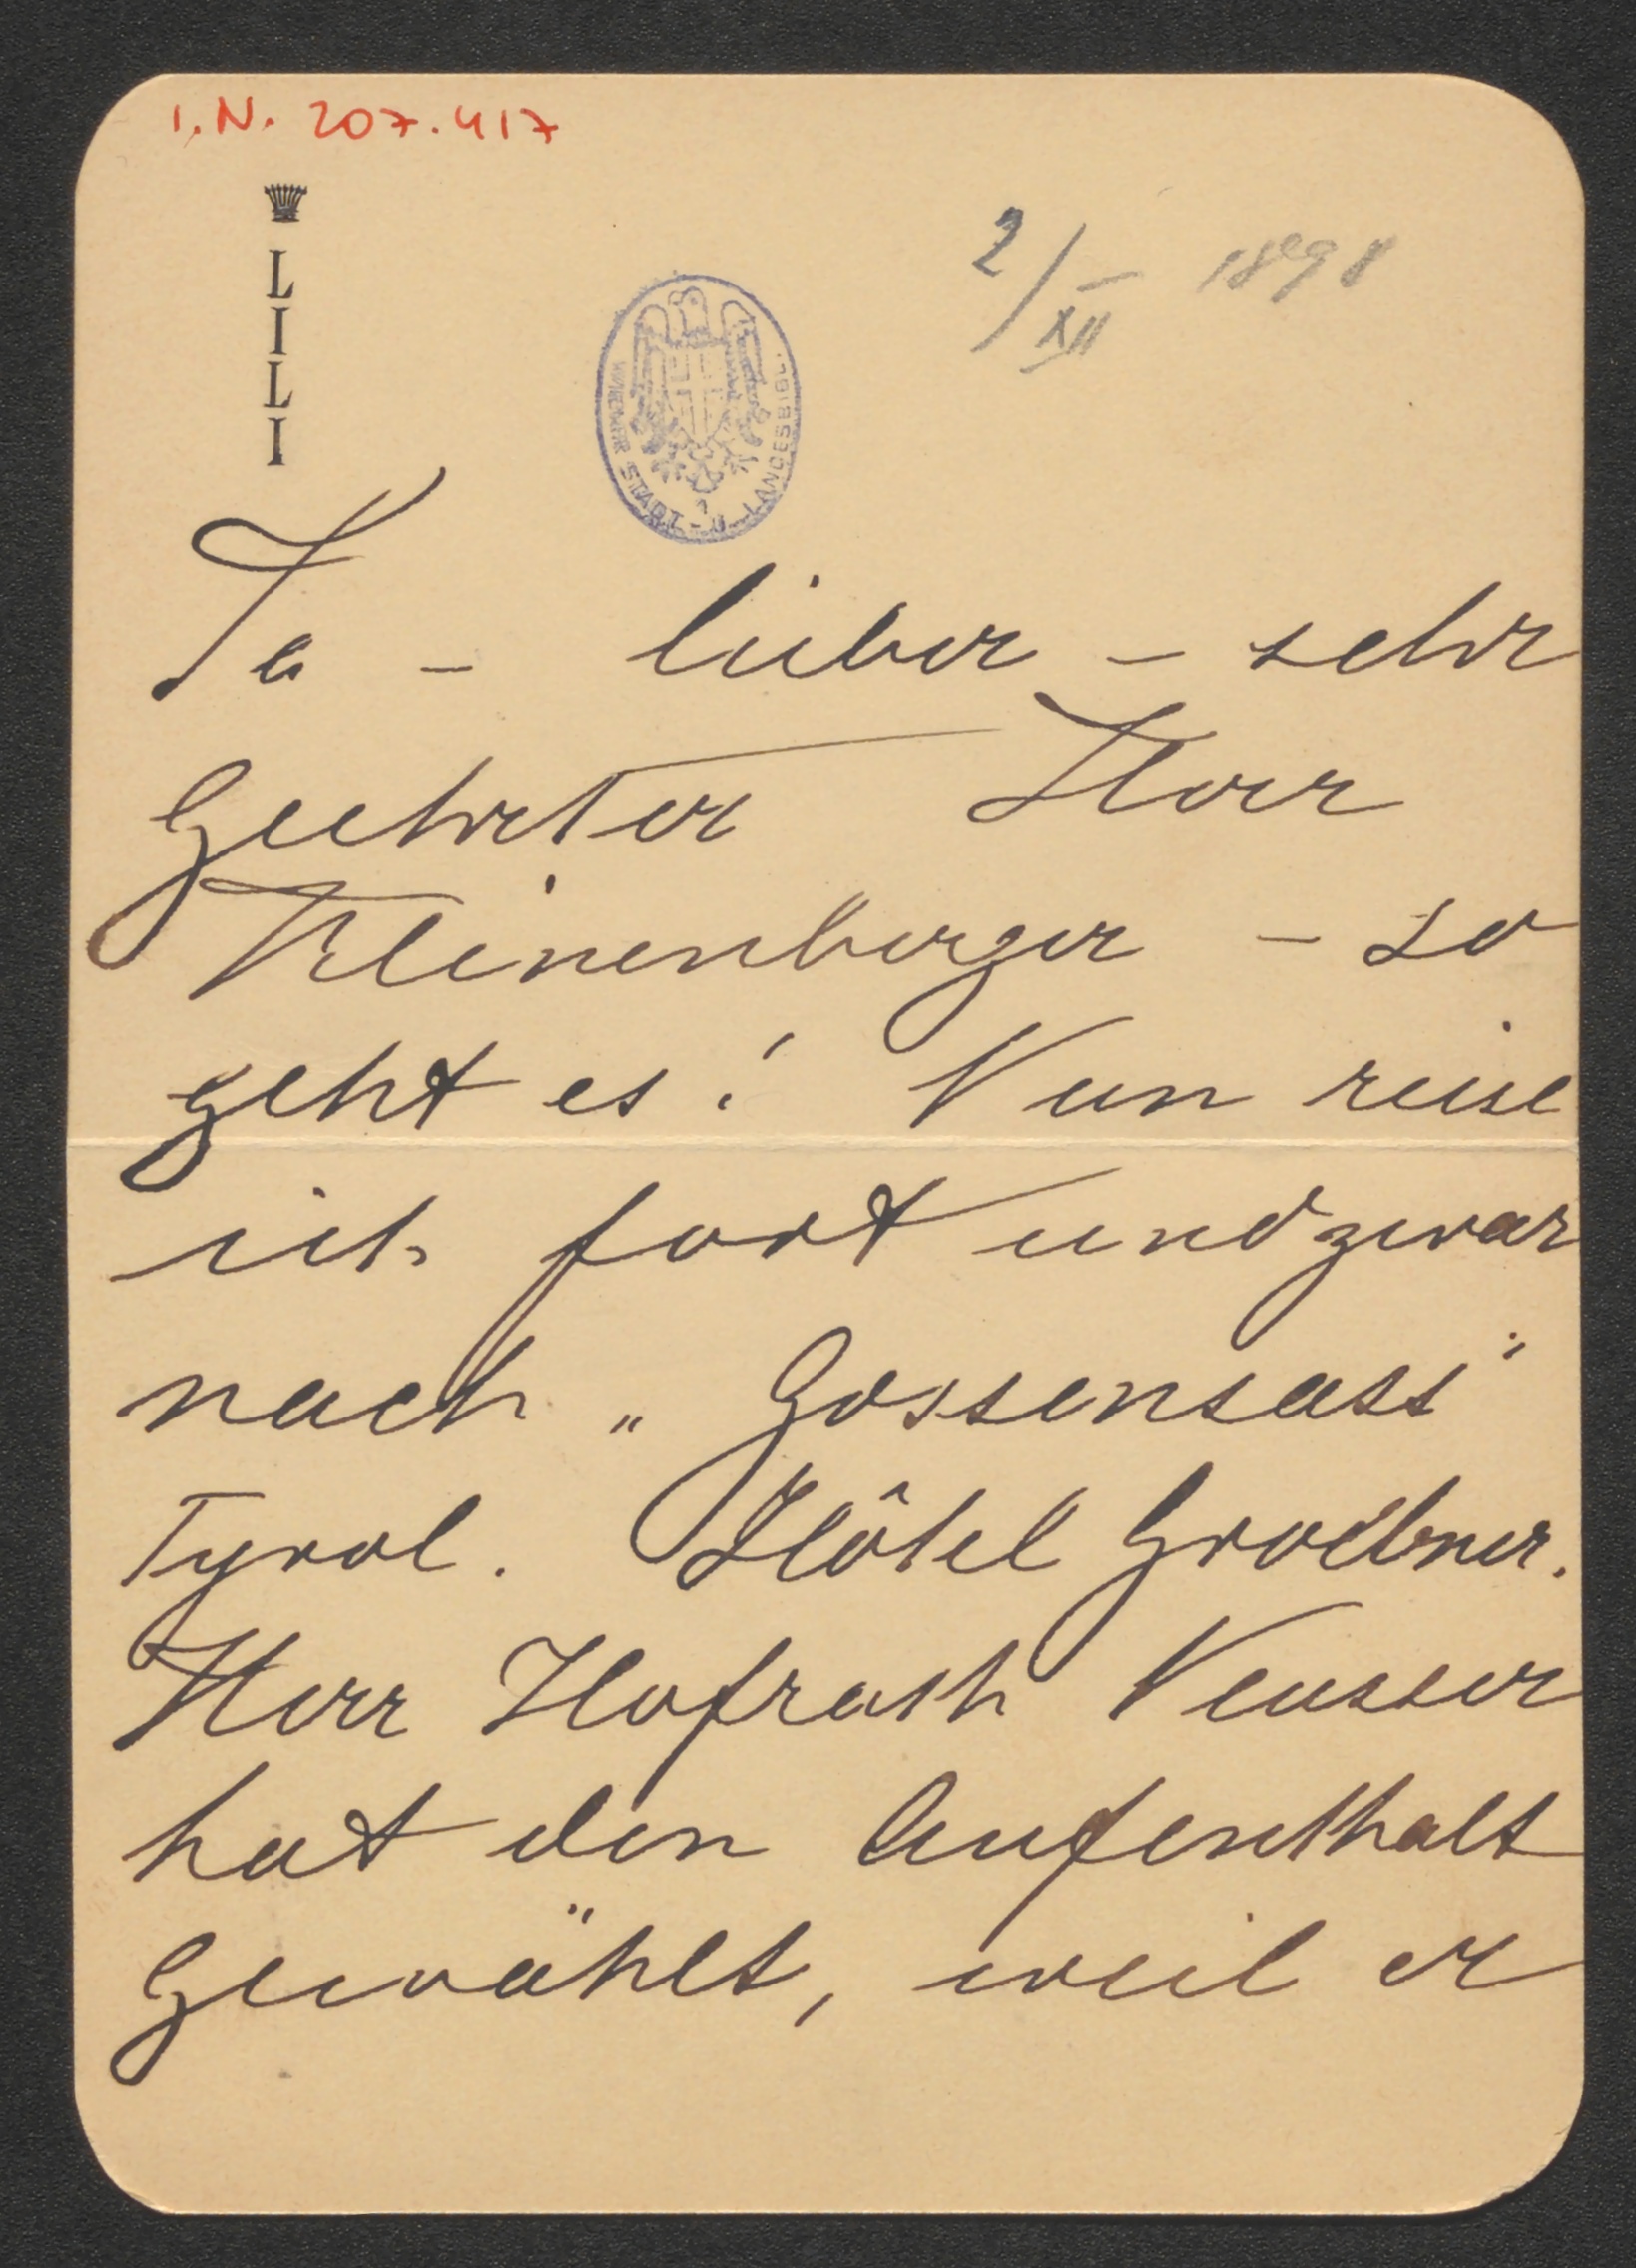 I.N. 207.417
LILI
2/XII 1898
WIENER STADT - U. LANDESBIBL.
Ja - lieber - sehr
Geehrter Herr
Kleinenberger - so
geht es! Nun reise
ich fort und zwar
nach „Gossensass"
Tyrol. Hôtel Groebner.
Herr Hofrath Neusser
hat den Aufenthalt
Gewählt, weil er